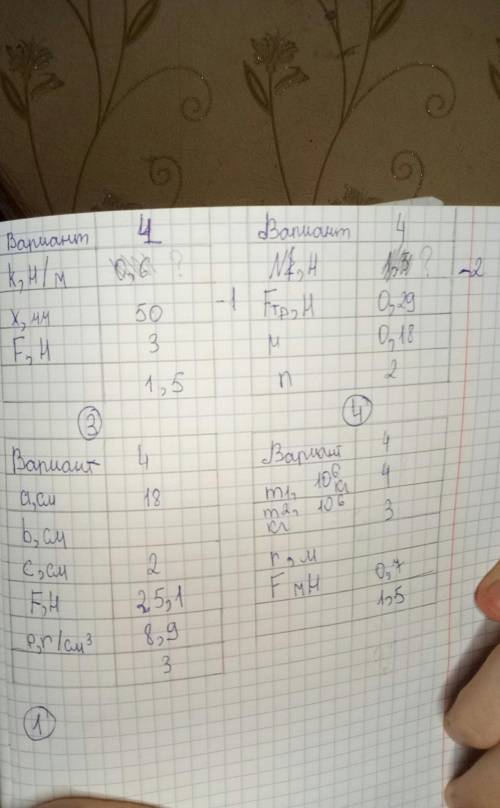 Вариант 4
k, Н/м ?
x, мм 50
F, Н 3
1,5
-1
Вариант 4
, Н ?
-2
Fтр, Н 0,29
μ 0,18
n 2
③
Вариант 4
a, см 18
b, см
c, см 2
F, Н 25,1
ρ, г/см³ 8,9
3
④
Вариант 4
m1, 10⁶ кг 4
m2, 10⁶ кг 3
r, м
F мН 0,7
1,5
①